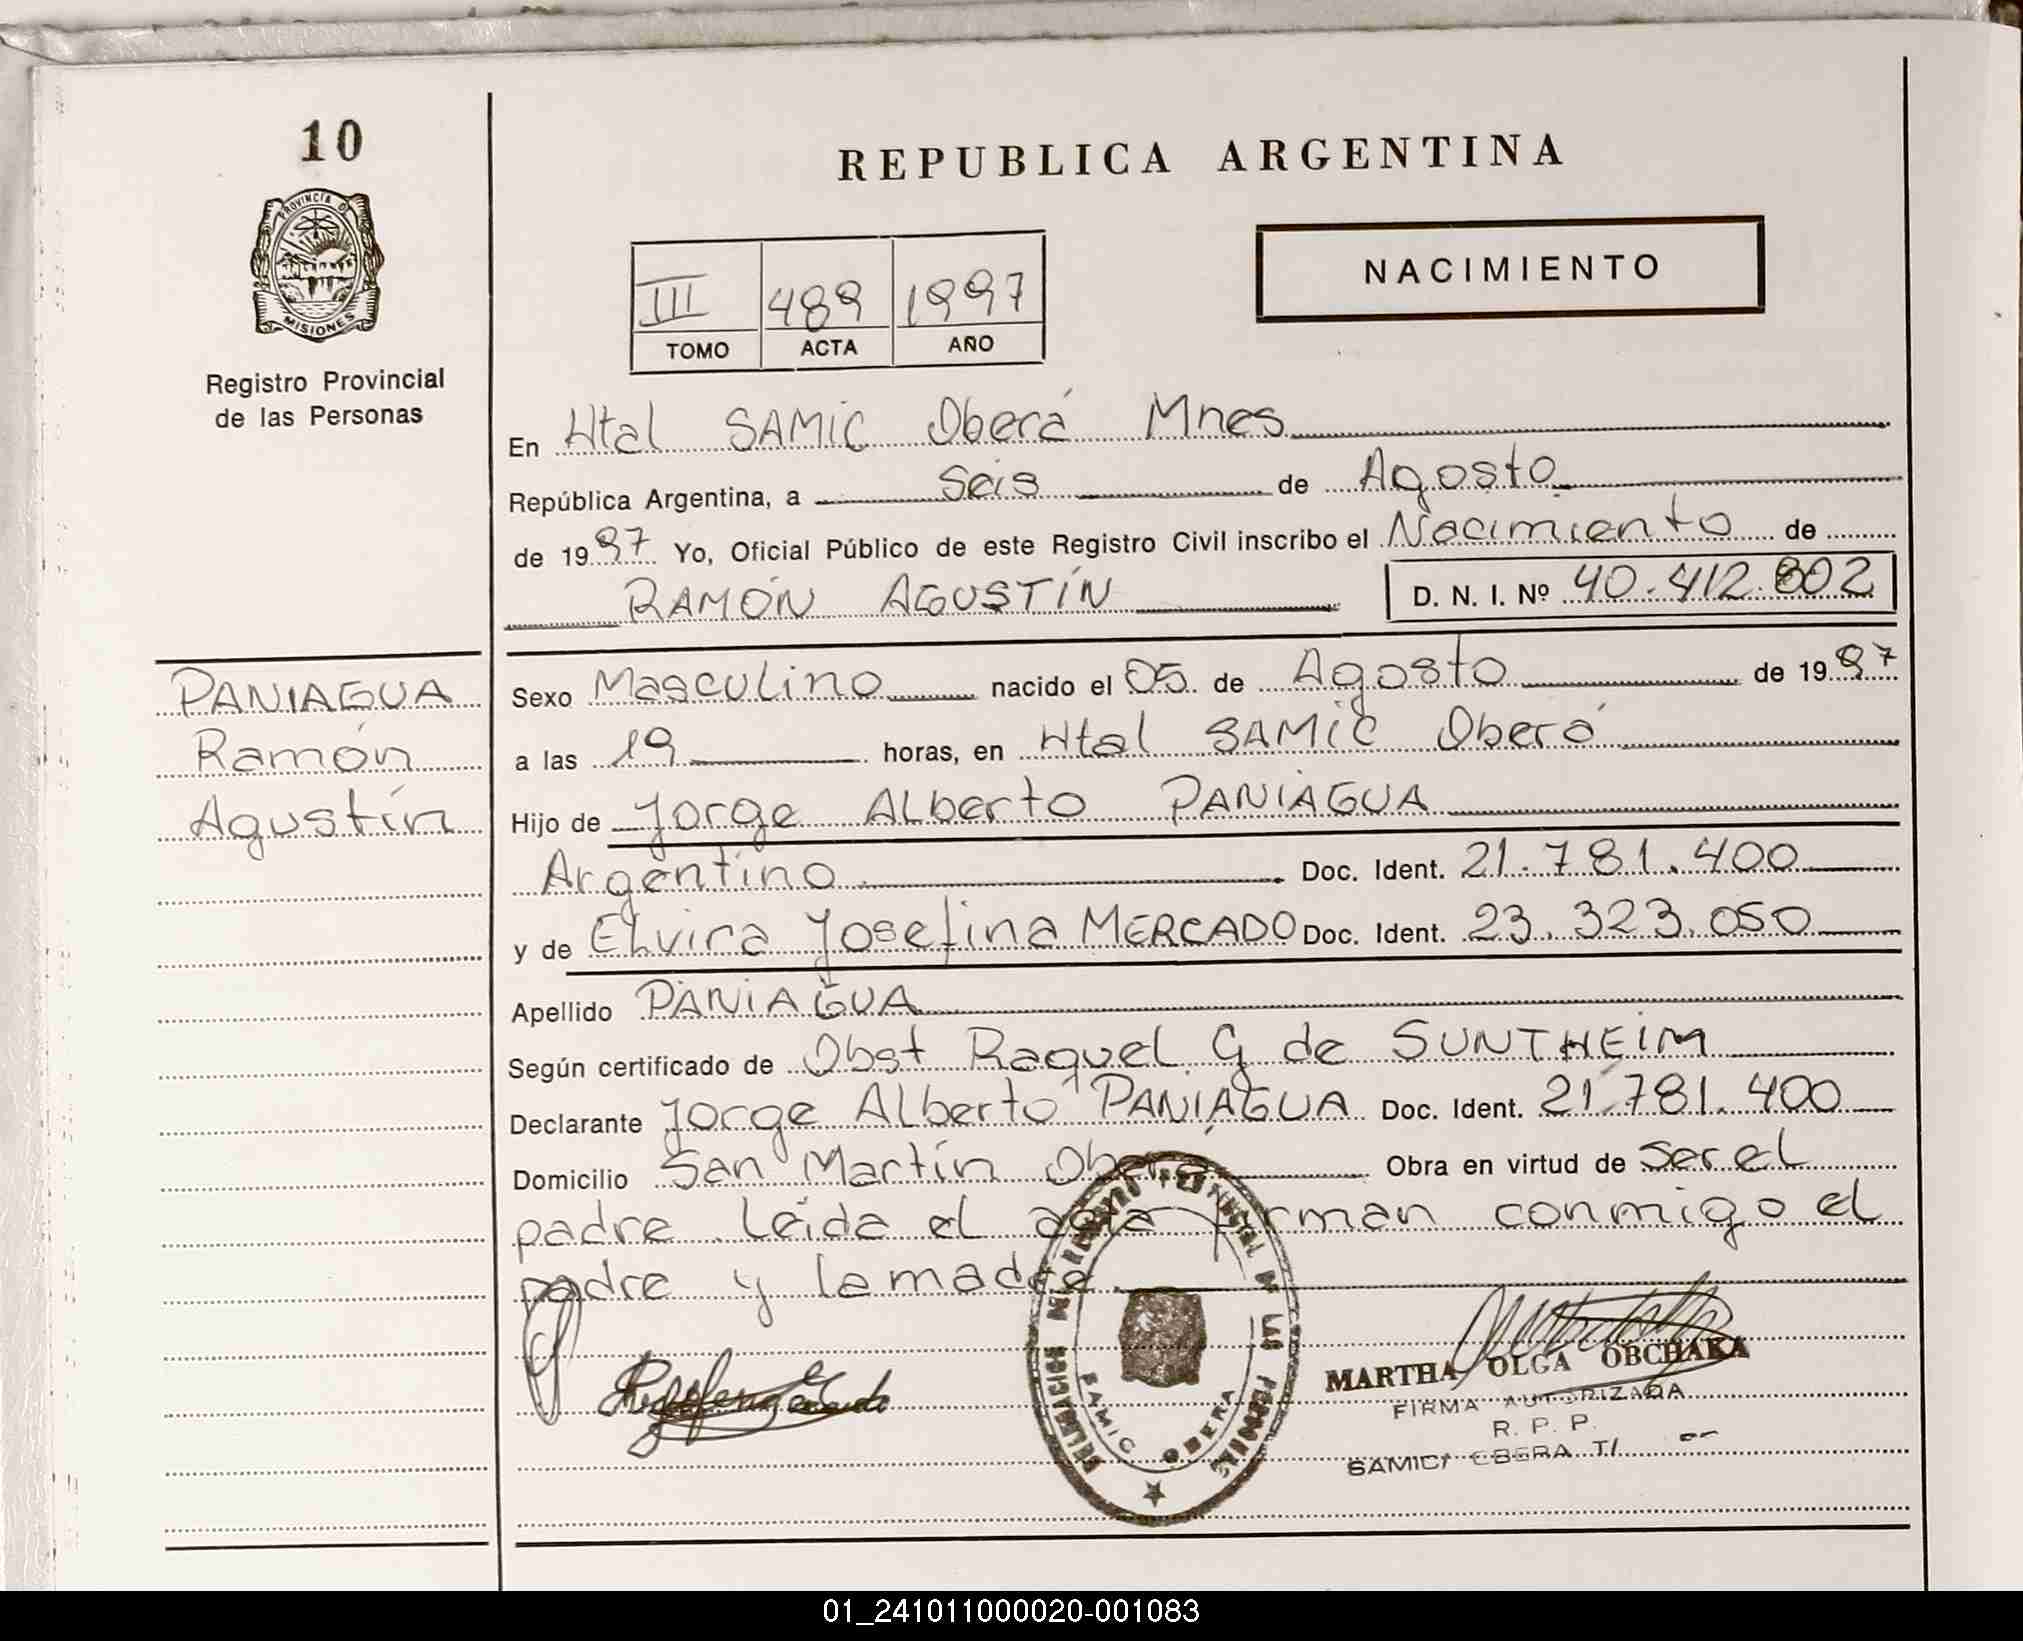 10
REPUBLICA ARGENTINA
PROVINCIA DE
MISIONES
Registro Provincial
de las Personas
NACIMIENTO
III 489 1997
TOMO ACTA AÑO
En Htal SAMIC Oberá Mnes
República Argentina, a seis de Agosto
de 1997 Yo, Oficial Público de este Registro Civil inscribo el Nacimiento de
RAMÓN AGUSTÍN D. N. I. Nº 40.412.802
PANIAGUA
Ramón
Agustín
Sexo Masculino nacido el 05 de Agosto de 1997
a las 19 horas, en Htal SAMIC Oberá
Hijo de Jorge Alberto PANIAGUA
Argentino Doc. Ident. 21.781.400
y de Elvira Josefina MERCADO Doc. Ident. 23.323.050
Apellido PANIAGUA
Según certificado de Obst Raquel G de SUNTHEIM
Declarante Jorge Alberto PANIAGUA Doc. Ident. 21.781.400
Domicilio San Martín Oberá Obra en virtud de ser el
padre. Leída el acta firman conmigo el
padre y la madre
SAMIC OBERA
MARTHA OLGA OBCHAKA
FIRMA AUTORIZADA
R. P. P.
SAMIC OBERA
01_241011000020-001083